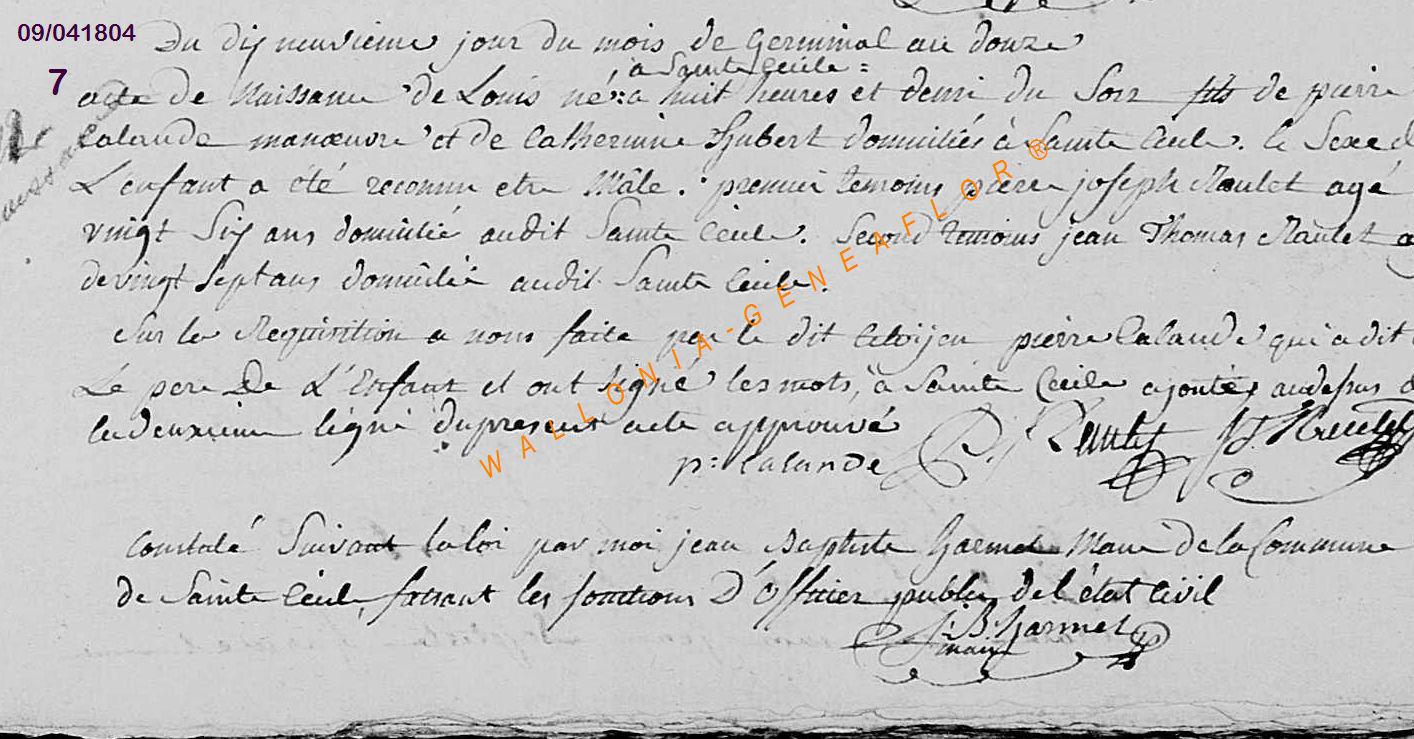 09/041804
Du dix neuvieme jour du mois de Germinal an douze
7
à Sainte Cecile =
acte de Naissance de Louis né a huit heures et demi du Soir fils de pierre
Lalande manœuvre et de Catherinne Hubert domiciliés à Sainte Cecile. le Sexe d
L'enfant a été reconnu etre Mâle. premier temoins pierre joseph Raulet agé
vingt Six ans domicilié audit Sainte Cecile. Second temoins jean Thomas Raulet a
de vingt Sept ans domicilié audit Sainte Cecile.
Sur la Requisition a nous faite par le dit Citoijen pierre Lalande qui a dit
Le pere De L'Enfant et ont signé les mots, à Sainte Cecile ajoutés audessus d
la deuxieme ligne du present acte approuvé
p: Lalande P. J Raulet J. T. Raulet
Constaté Suivant la loi par moi jean Baptiste Garmet Maire de la Commune
de Sainte Cecile, faisant les fonctions D'Officier public de l'état Civil
J. B. Garmet
maire
WALLONIA-GENEAFLOR ®